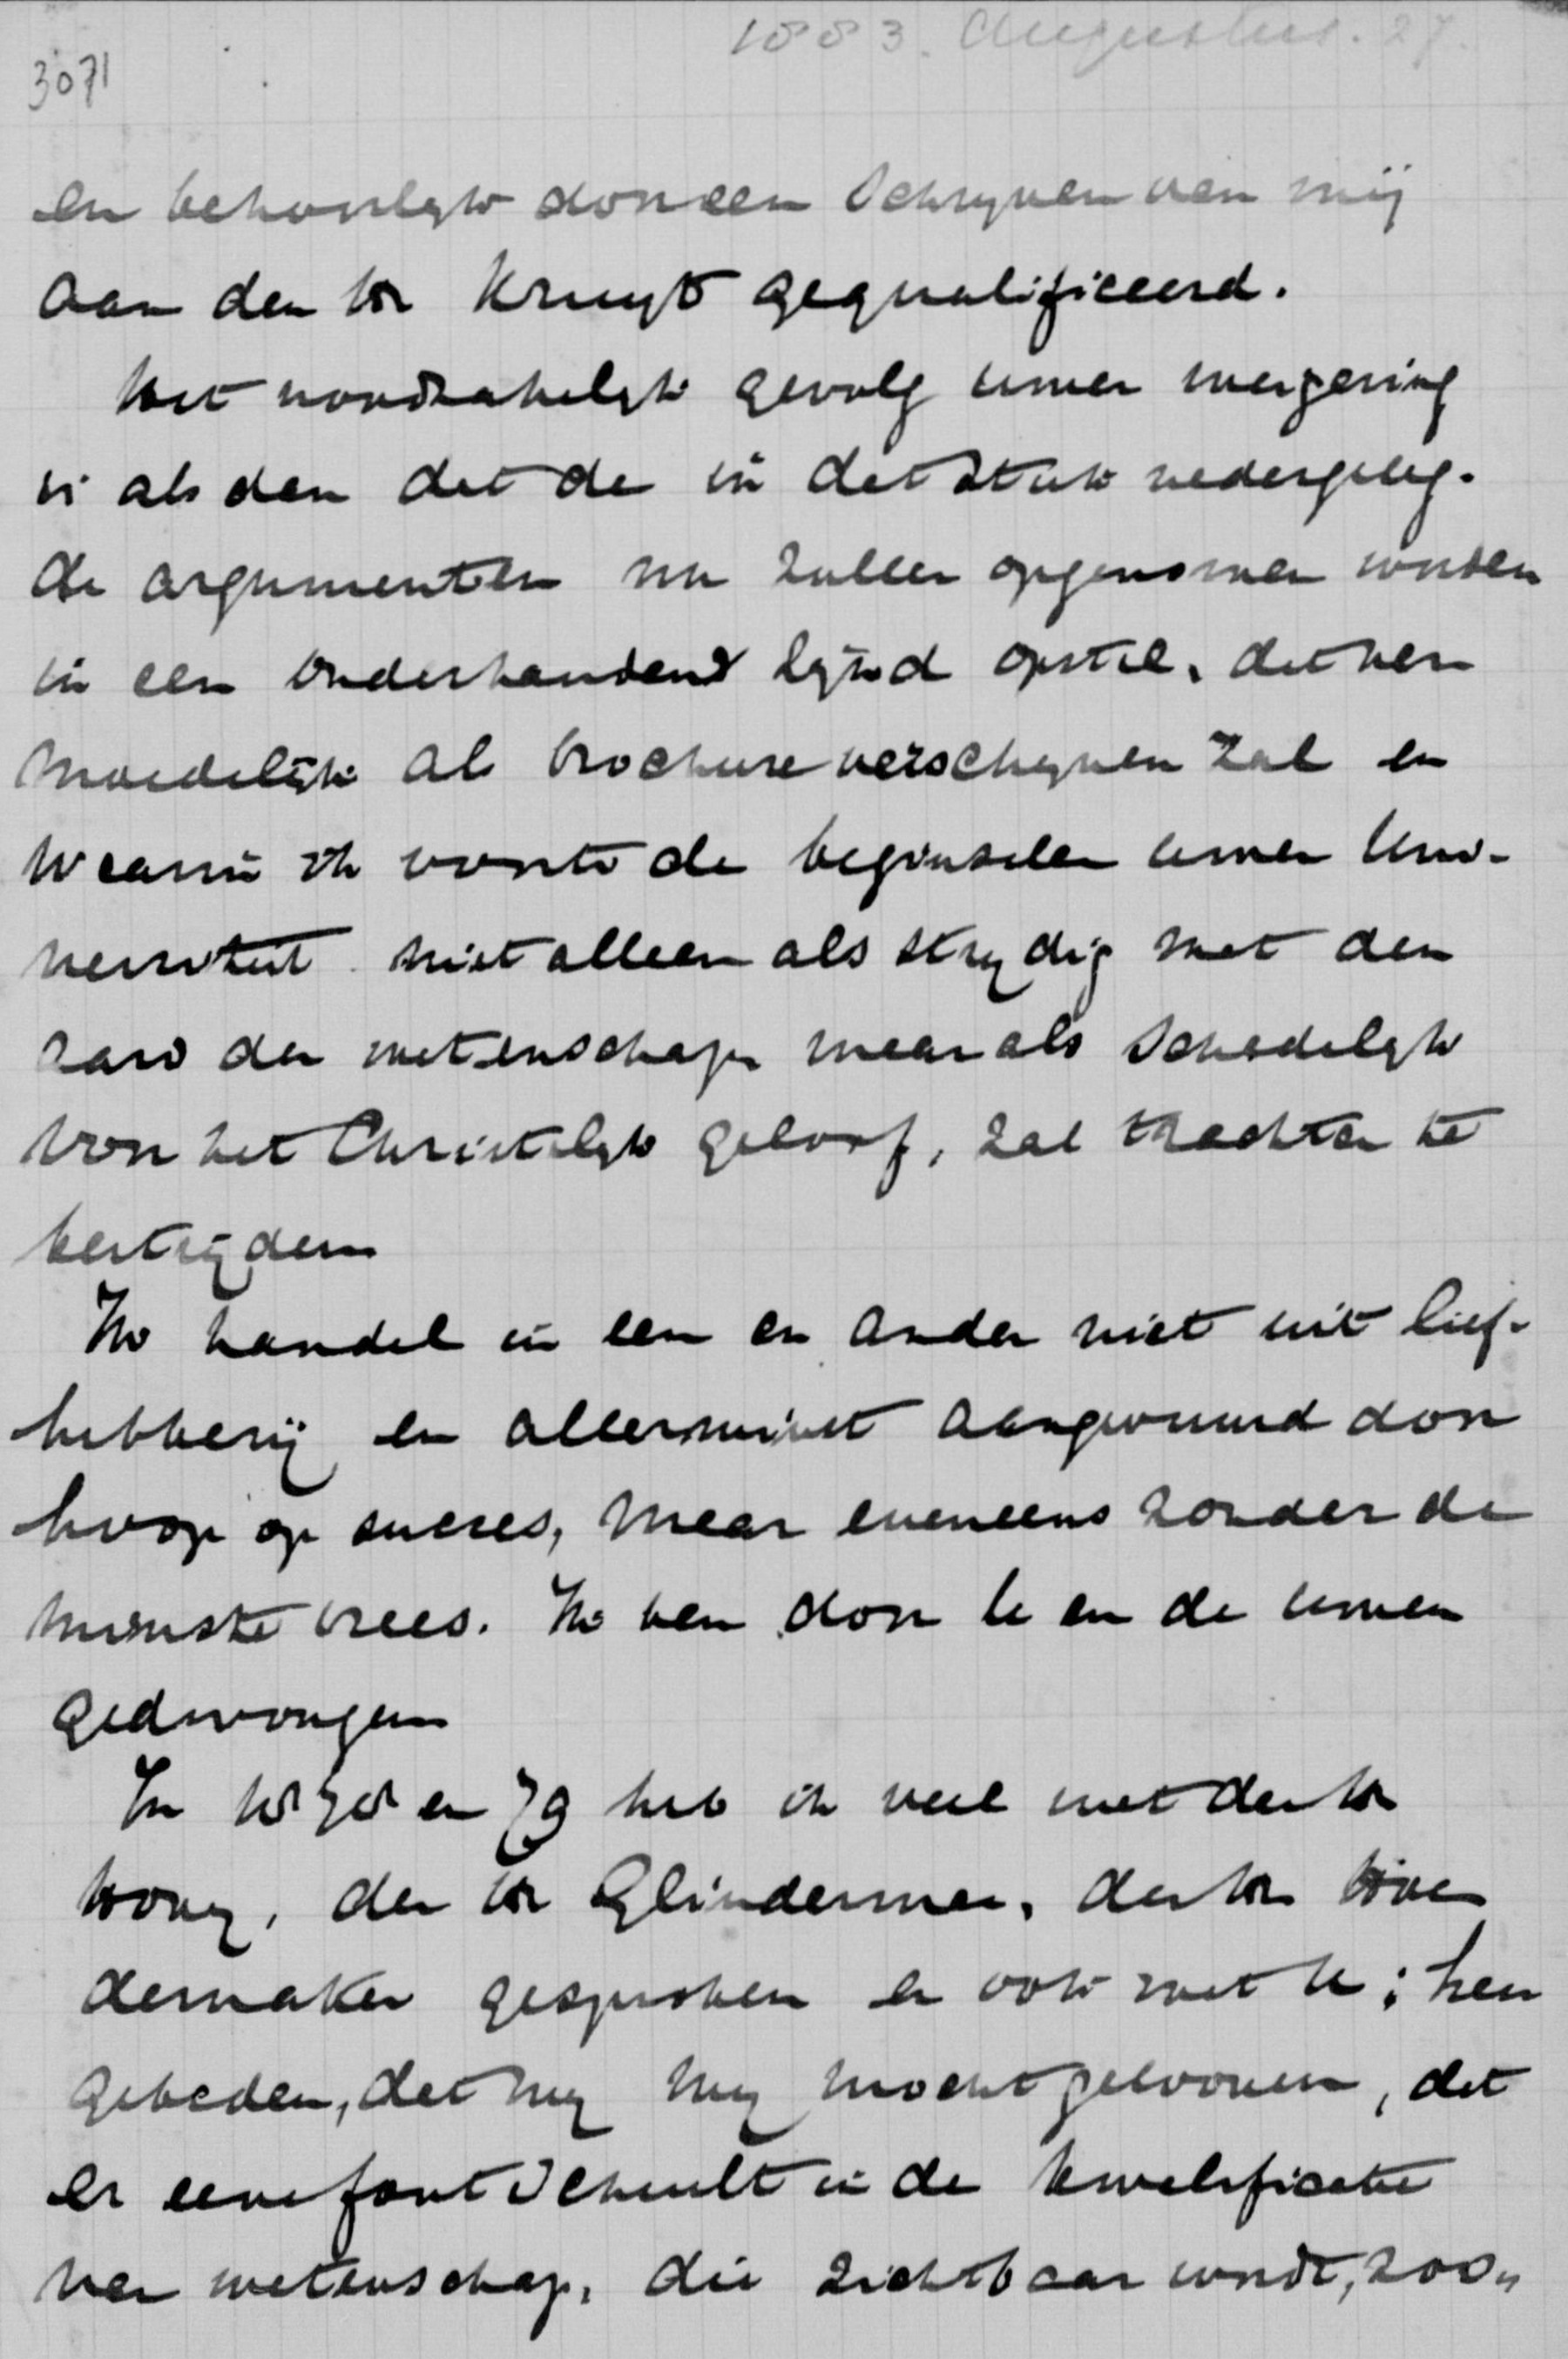 1883. Augustus. 27.
3071
en behoorlyk door een schryven van mij
aan den Hr Kruyt gequalificeerd.
Het noodzakelyk gevolg uwer weigering
is als dan dat de in dat stuk nedergeleg-
de argumenten nu zullen opgenomen worden
in een onderhanden zynd opstel, dat ver
moedelijk als brochure verschynen zal en
waarin ik voorts de beginselen uwer Uni-
versiteit niet alleen als strydig met den
aard der wetenschap maar als schadelyk
voor het Christelyk geloof, zal trachten te
bestrijden
Ik handel in een en ander niet uit lief-
hebberij en allerminst aangevuurd door
hoop op succes, maar eveneens zonder de
minste vrees. Ik ben door U en de uwen
gedwongen
In 1878 en 79 heb ik veel met den Hr
Hovy, den Hr Glinderman, den Hr
gesproken en ook met U; hen
gebeden, dat my my mocht gelooven, dat
er eene fout schuilt in de kwalificatie
van wetenschap, die zichtbaar wordt, zoo„